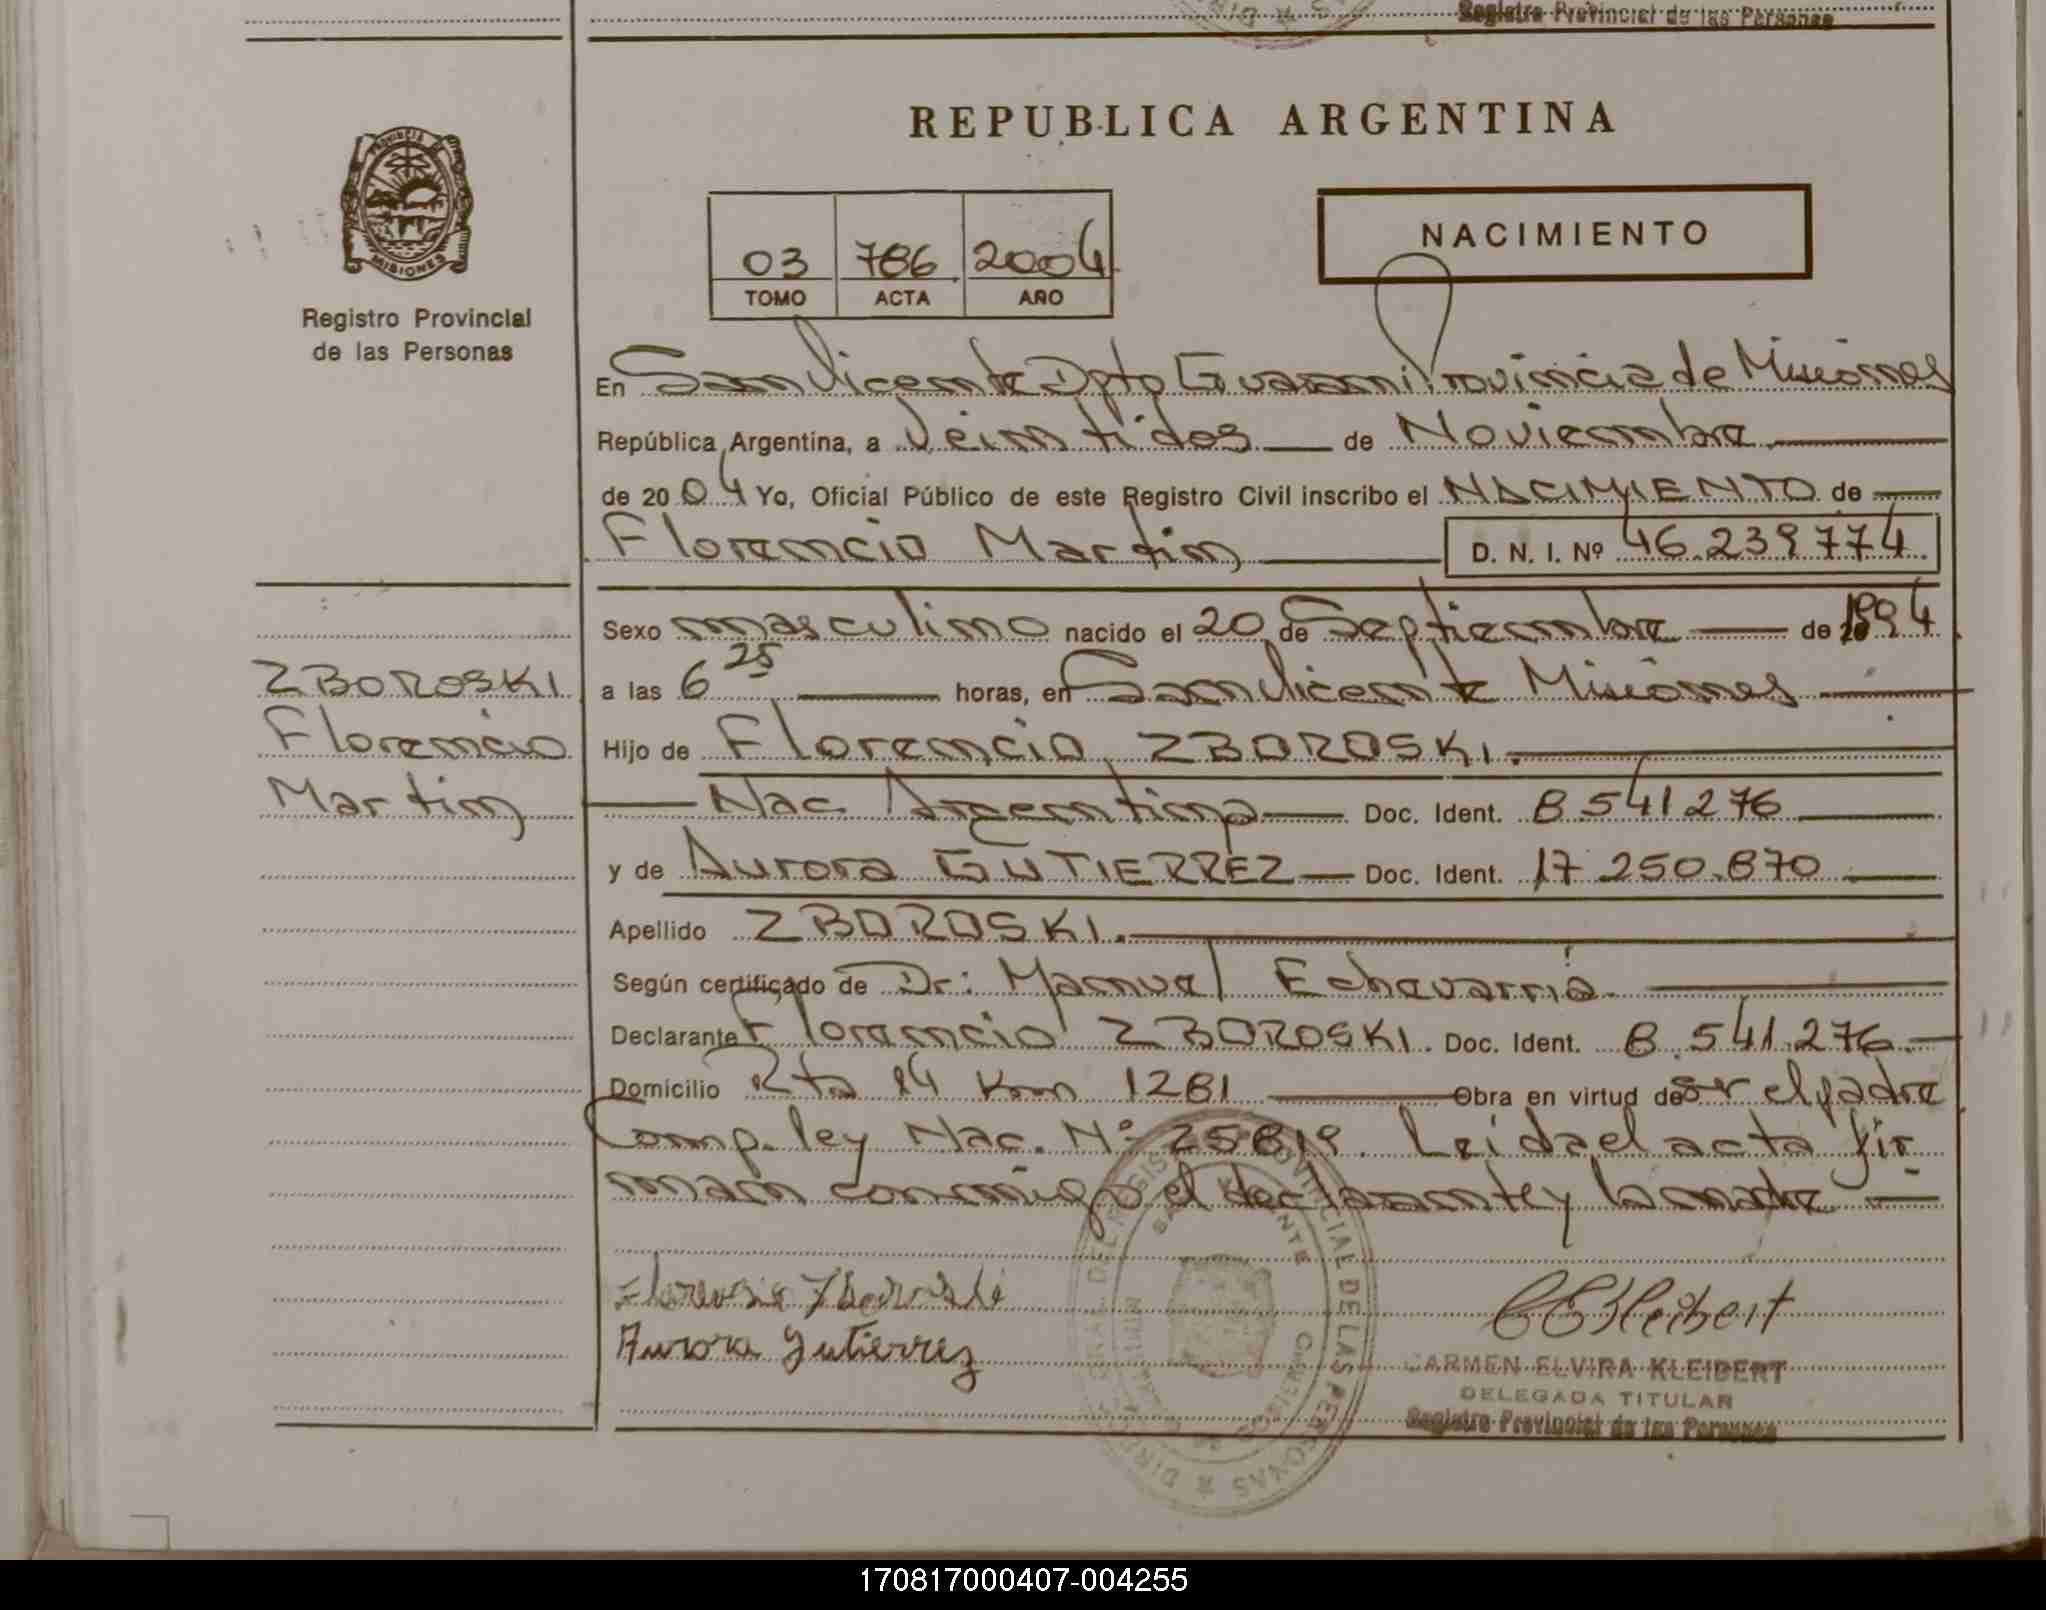 Registro Provincial de las Personas
REPUBLICA ARGENTINA
PROVINCIA DE
MISIONES
Registro Provincial
de las Personas
03 786 2004
TOMO ACTA AÑO
NACIMIENTO
En San Vicente Dpto Guarani Provincia de Misiones
República Argentina, a Veintidos de Noviembre
de 2004 Yo, Oficial Público de este Registro Civil inscribo el NACIMIENTO de
Florencio Martin D. N. I. Nº 46.239774
Sexo masculino nacido el 20 de Septiembre de 1994
ZBOROSKI
Florencio
Martin
a las 6 25 horas, en San Vicente Misiones
Hijo de Florencio ZBOROSKI.
Nac. Argentina Doc. Ident. 8541276
y de Aurora GUTIERREZ Doc. Ident. 17 250.870
Apellido ZBOROSKI.
Según certificado de Dr: Manuel Echavarria
Declarante Florencio ZBOROSKI. Doc. Ident. 8.541.276.
Domicilio Rta 14 Km 1281 Obra en virtud de Sr el padre
Comp. ley Nac. Nº 25819. Leida el acta fir
man conmigo el declarante y la madre
Florencio Zboroski
Aurora Gutierrez
CEKleibert
CARMEN ELVIRA KLEIBERT
DELEGADA TITULAR
Registro Provincial de las Personas
170817000407-004255